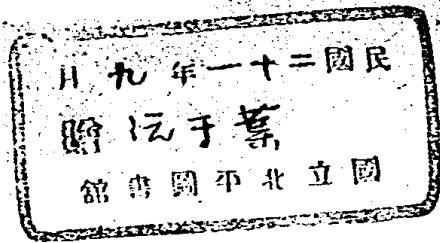 民國二十一年九月
葉于沅贈
國立北平圖書館